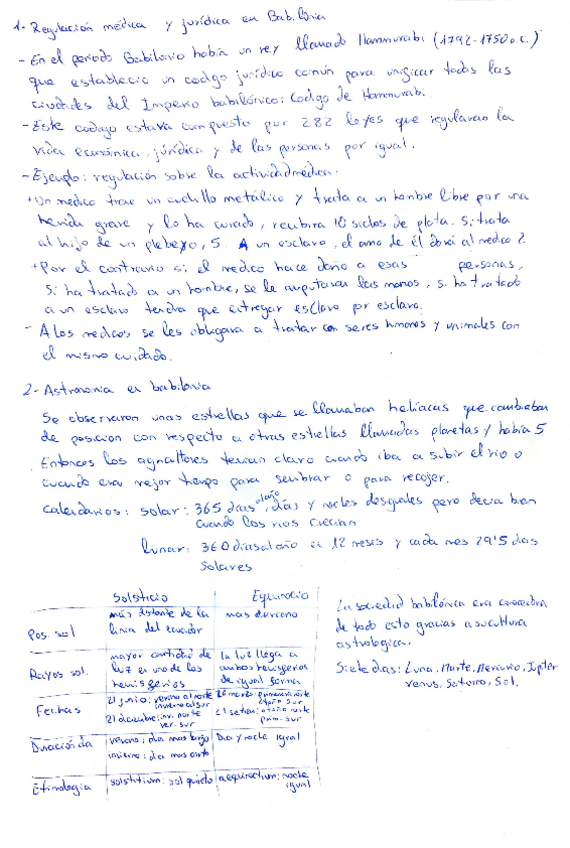 1- Regulación médica y jurídica en Babilonia
- En el periodo Babilonio había un rey llamado Hammurabi (1792-1750 a.c.)
que establecio un codigo jurídico común para unificar todas las
ciudades del Imperio babilónico: Codigo de Hammurabi.
- Este codigo estava compuesto por 282 leyes que regulavan la
vida económica, jurídica y de las personas por igual.
- Ejemplo: regulación sobre la actividad médica:
+ Un medico trae un cuchillo metálico y trata a un hombre libre por una
herida grave y lo ha curado, recibira 10 siclos de plata. Si trata
al hijo de un plebeyo, 5. A un esclavo, el amo de él dará al medico 2.
+ Por el contrario si el medico hace daño a esas personas,
si ha tratado a un hombre, se le amputavan las manos, si ha tratado
a un esclavo tendra que entregar esclavo por esclavo.
- A los medicos se les obligava a tratar con seres humanos y animales con
el mismo cuidado.
2- Astronomia en babilonia
Se observaron unas estrellas que se llamaban helíacas que cambiaban
de posicion con respecto a otras estrellas llamadas planetas y había 5
Entonces los agricultores tenian claro cuando iba a subir el rio o
cuando era mejor tiempo para sembrar o para recojer.
Calendarios: solar: 365 dias al año, días y noches desiguales pero decia bien
cuando los rios crecian
lunar: 360 dias al año en 12 meses y cada mes 29'5 dias
solares
Solsticio Equinocio
Pos. sol más distante de la linia del ecuador mas cercano
Rayos sol. mayor cantidad de luz en uno de los hemisferios la luz llega a ambos hemisferios de igual forma
Fechas 21 junio: verano al norte invierno al sur 21 diciembre: inv. norte ver. sur primavera norte otoño sur 21 setien: otoño norte prim. sur
Duración día verano: día mas largo invierno: dia mas corto Dia y noche igual
Etimologia solstitium: sol quieto aequinoctium: noche igual
La sociedad babilónica era conocedora
de todo esto gracias a su cultura
astrologica.
Siete dias: Luna, Marte, Mercurio, Jupiter
venus, Saturno, Sol.